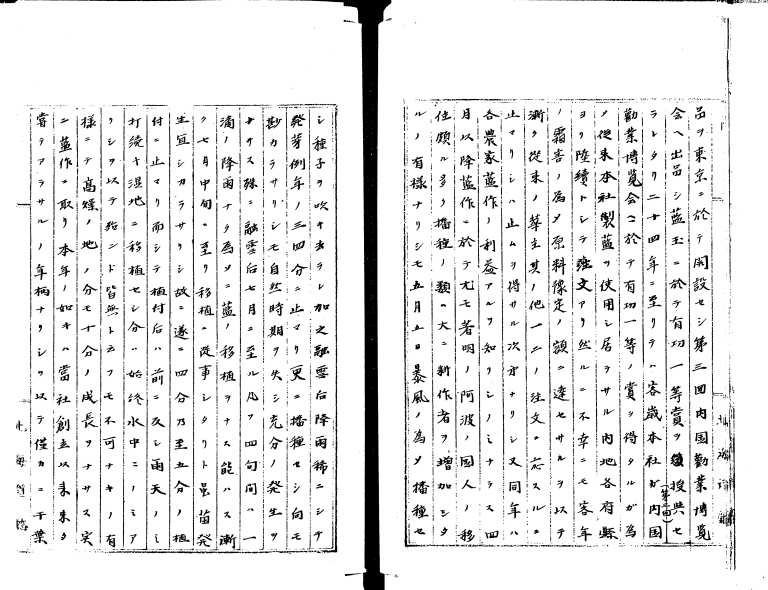 品ヲ東京ニ於テ開設セシ第三回内国勧業博覧
会ヘ出品シ藍玉ニ於テ有功一等賞ヲ授与セ
ラレタリ二十四年ニ至リテハ客歳本社ガ内国
(第三回)
勧業博覧会ニ於テ有功一等ノ賞ヲ得タルガ為
メ従来本社製藍ヲ使用シ居ラサル内地各府縣
ヨリ陸續トシテ注文アリ然ルニ不幸ニモ客年
ノ霜害ノ為メ原料豫定ノ額ニ達セサルヲ以テ
漸ク従来ノ華主其ノ他一二ノ注文ニ応スルニ
止マリシハ止ムヲ得サル次第ナリシ又同年ハ
各農家藍作ノ利益アルヲ知リシノミナラス四
月以降藍作ニ於テ尤モ著明ノ阿波ノ国人ノ移
住頗ル多ク播種ノ類ハ大ニ新作者ヲ増加シタ
ルノ有様ナリシモ五月五日暴風ノ為メ播種セ
シ種子ヲ吹キ去ラレ加之融雪后降雨稀ニシテ
発芽例年ノ三四分ニ止マリ更ニ播種セシ向モ
尠カラサリシモ自然時期ヲ失シ充分ノ発生ヲ
ナサス殊ニ融雪后七月ニ至ル凡ソ四旬間ハ一
滴ノ降雨ナク為メニ藍ノ移植ヲナス能ハス漸
ク七月中旬ニ至リ移植ニ従事シタリト虽苗発
生宜シカラサリシ故ニ遂ニ四分乃至五分ノ植
付ニ止マリ而シテ植付后ハ前ニ反シ雨天ノミ
打續キ湿地ニ移植セシ分ハ始終水中ニノミア
リシヲ以テ殆ント皆無ト云フモ不可ナキノ有
様ニテ高燥ノ地ノ分モ十分ノ成長ヲナサス実
ニ藍作ニ取リ本年ノ如キハ當社創立以来未タ
嘗テアラサルノ年柄ナリシヲ以テ僅カニ干葉